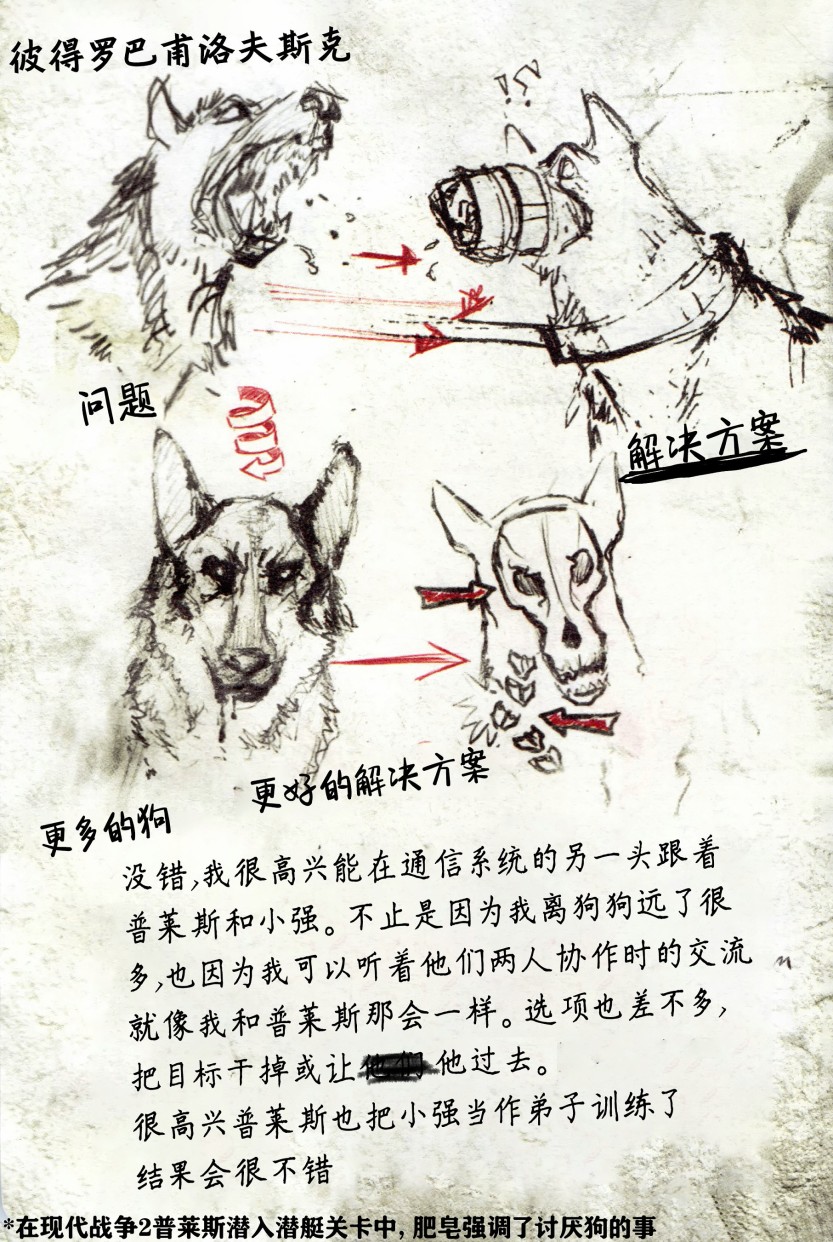 彼得罗巴甫洛夫斯克
问题
解决方案
更好的解决方案
更多的狗
没错,我很高兴能在通信系统的另一头跟着
普莱斯和小强。不止是因为我离狗狗远了很
多,也因为我可以听着他们两人协作时的交流
就像我和普莱斯那会一样。选项也差不多,
把目标干掉或让他们他过去。
很高兴普莱斯也把小强当作弟子训练了
结果会很不错
*在现代战争2普莱斯潜入潜艇关卡中,肥皂强调了讨厌狗的事